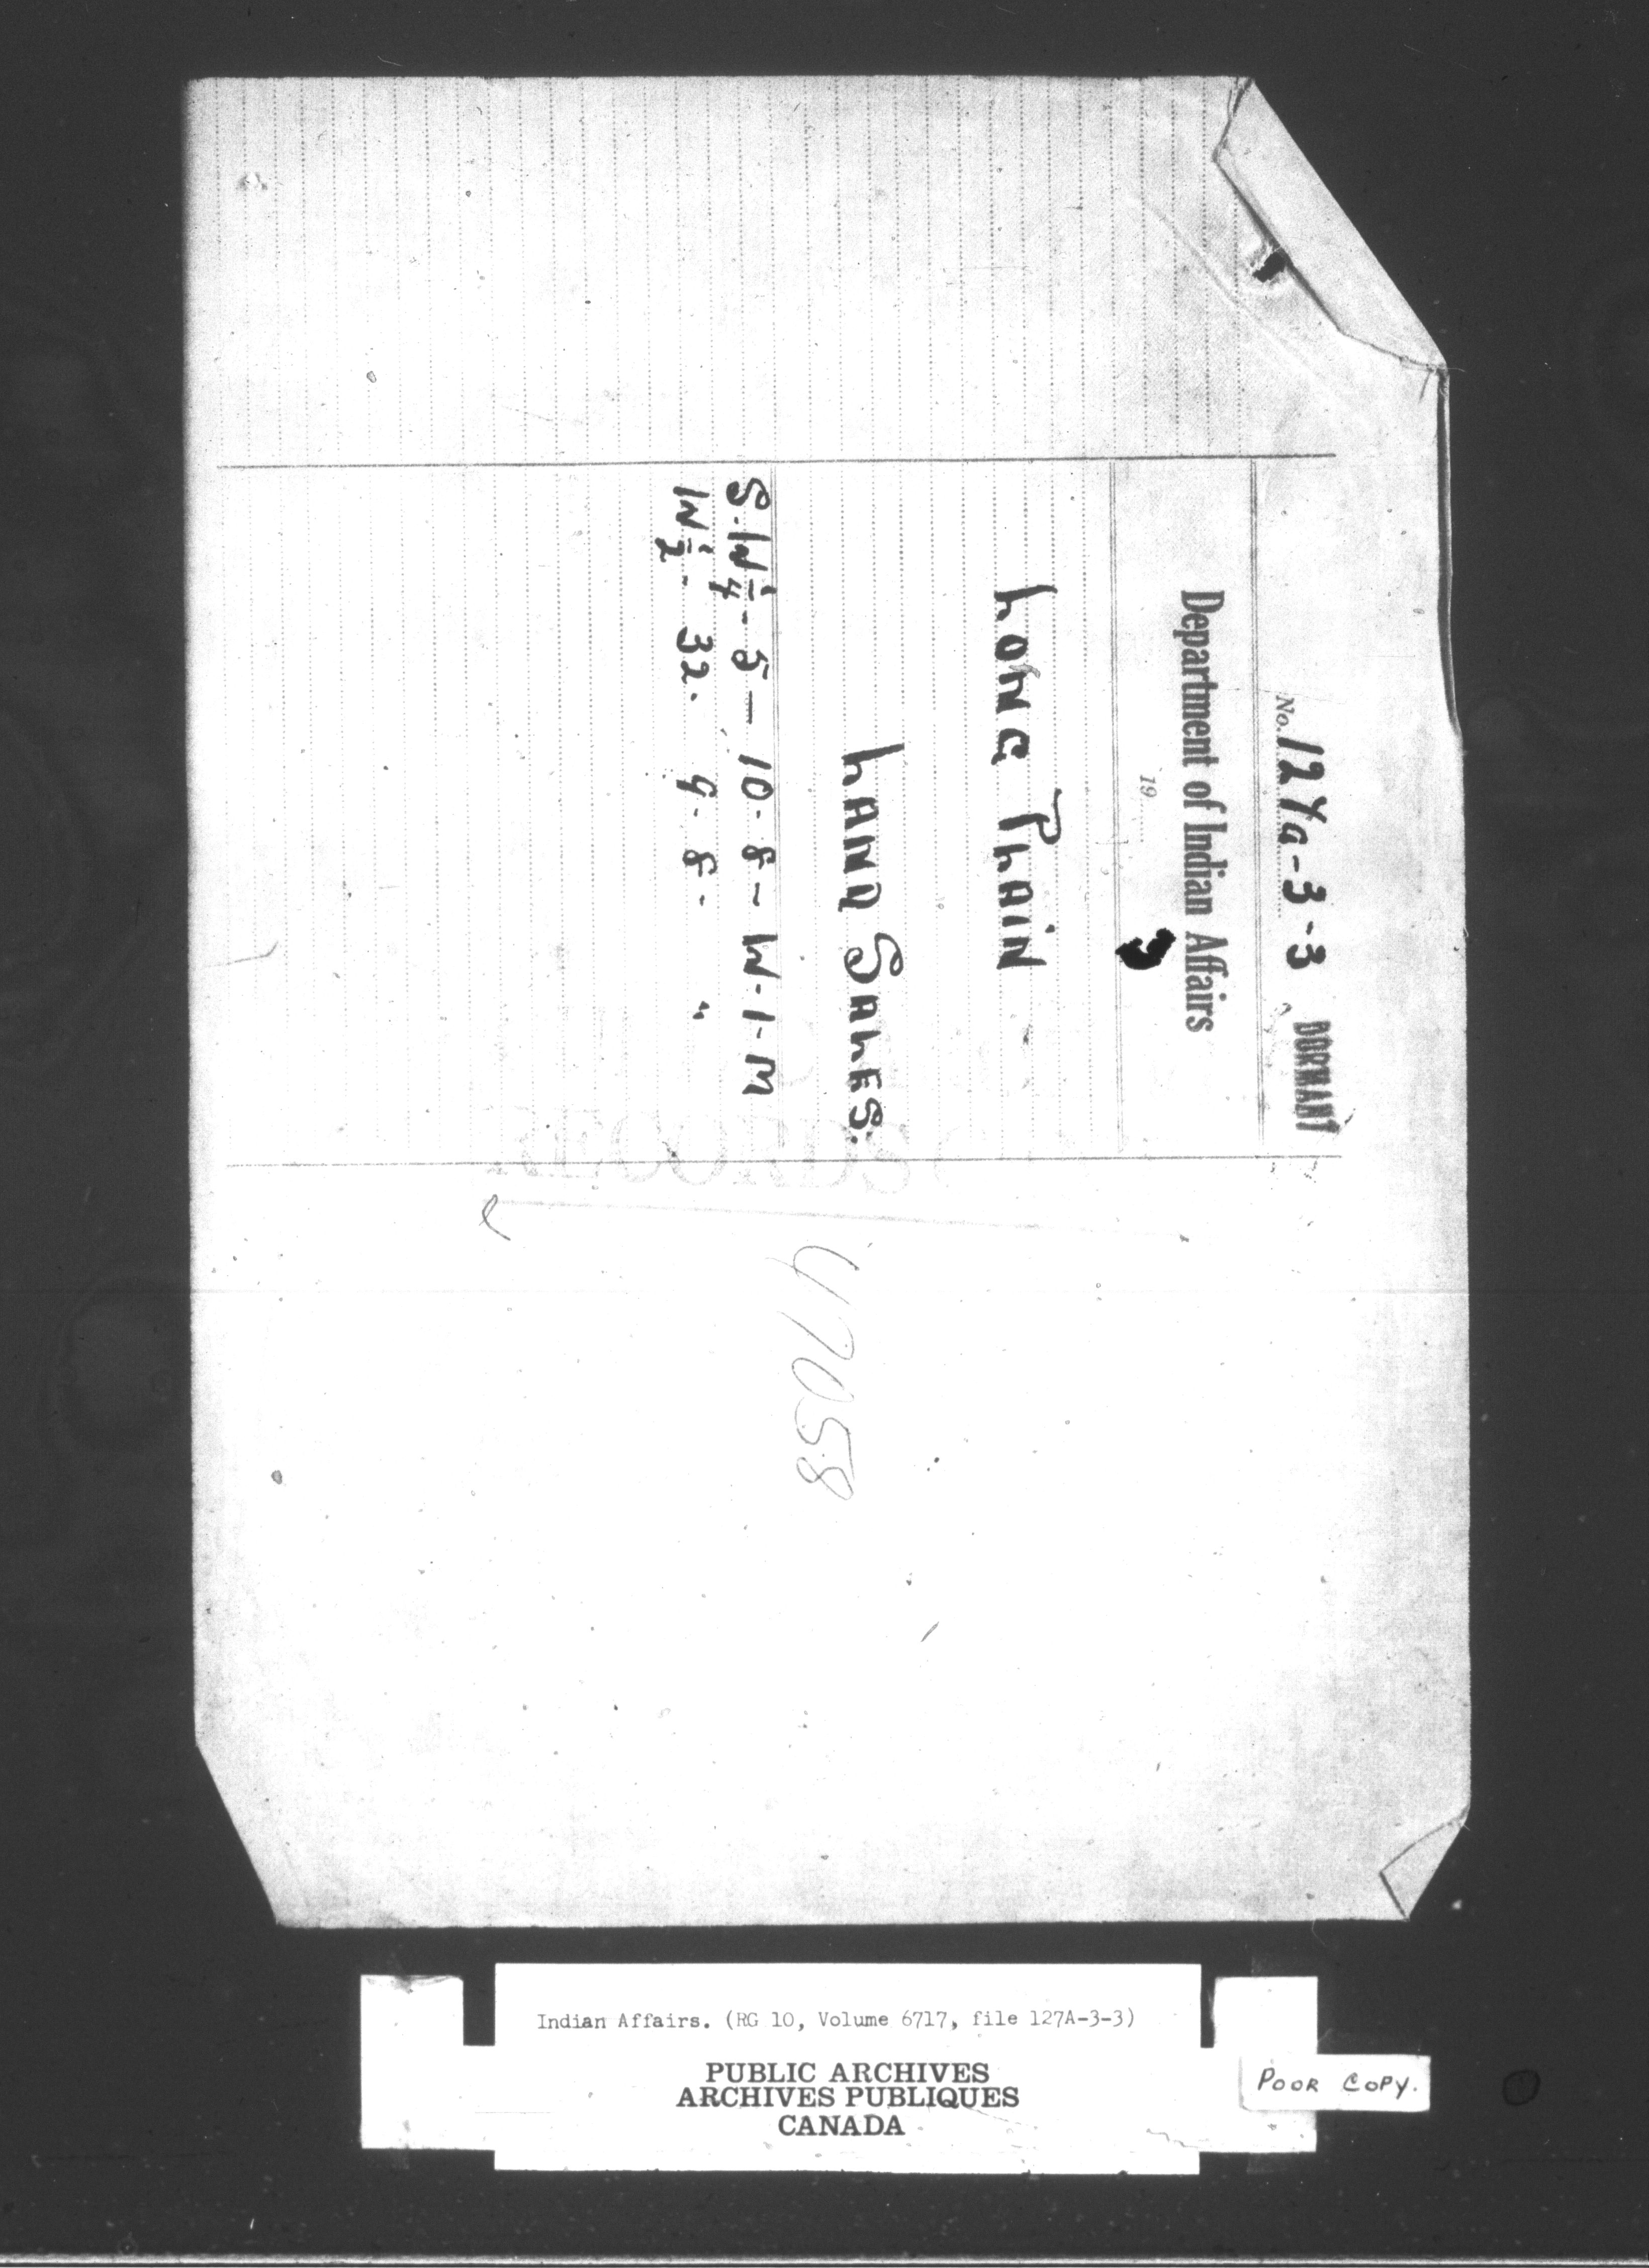 No. 127a-3-3
DORMANT
Department of Indian Affairs
19
Long Plain
Land Sales.
S.W 1/4 - 5 - 10 - 8 - W - 1 - M
W 1/2 - 32. 9 - 8 - "
47058
Indian Affairs. (RG 10, Volume 6717, file 127A-3-3)
PUBLIC ARCHIVES
ARCHIVES PUBLIQUES
CANADA
POOR COPY.